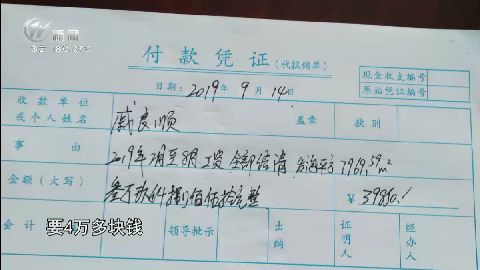 新闻
多云 18℃-27℃
付款凭证(代报销单)
日期：2019年9月14日
现金收支编号
原始凭证编号
收款单位或个人姓名
戚良顺
盖章
款别
事由
2019年 月至8月工资全部结清 7969.59m²
金额(大写)
叁万玖仟捌佰伍拾元整
￥39850.
会计
领导批示
出纳
证明人
经办人
要4万多块钱